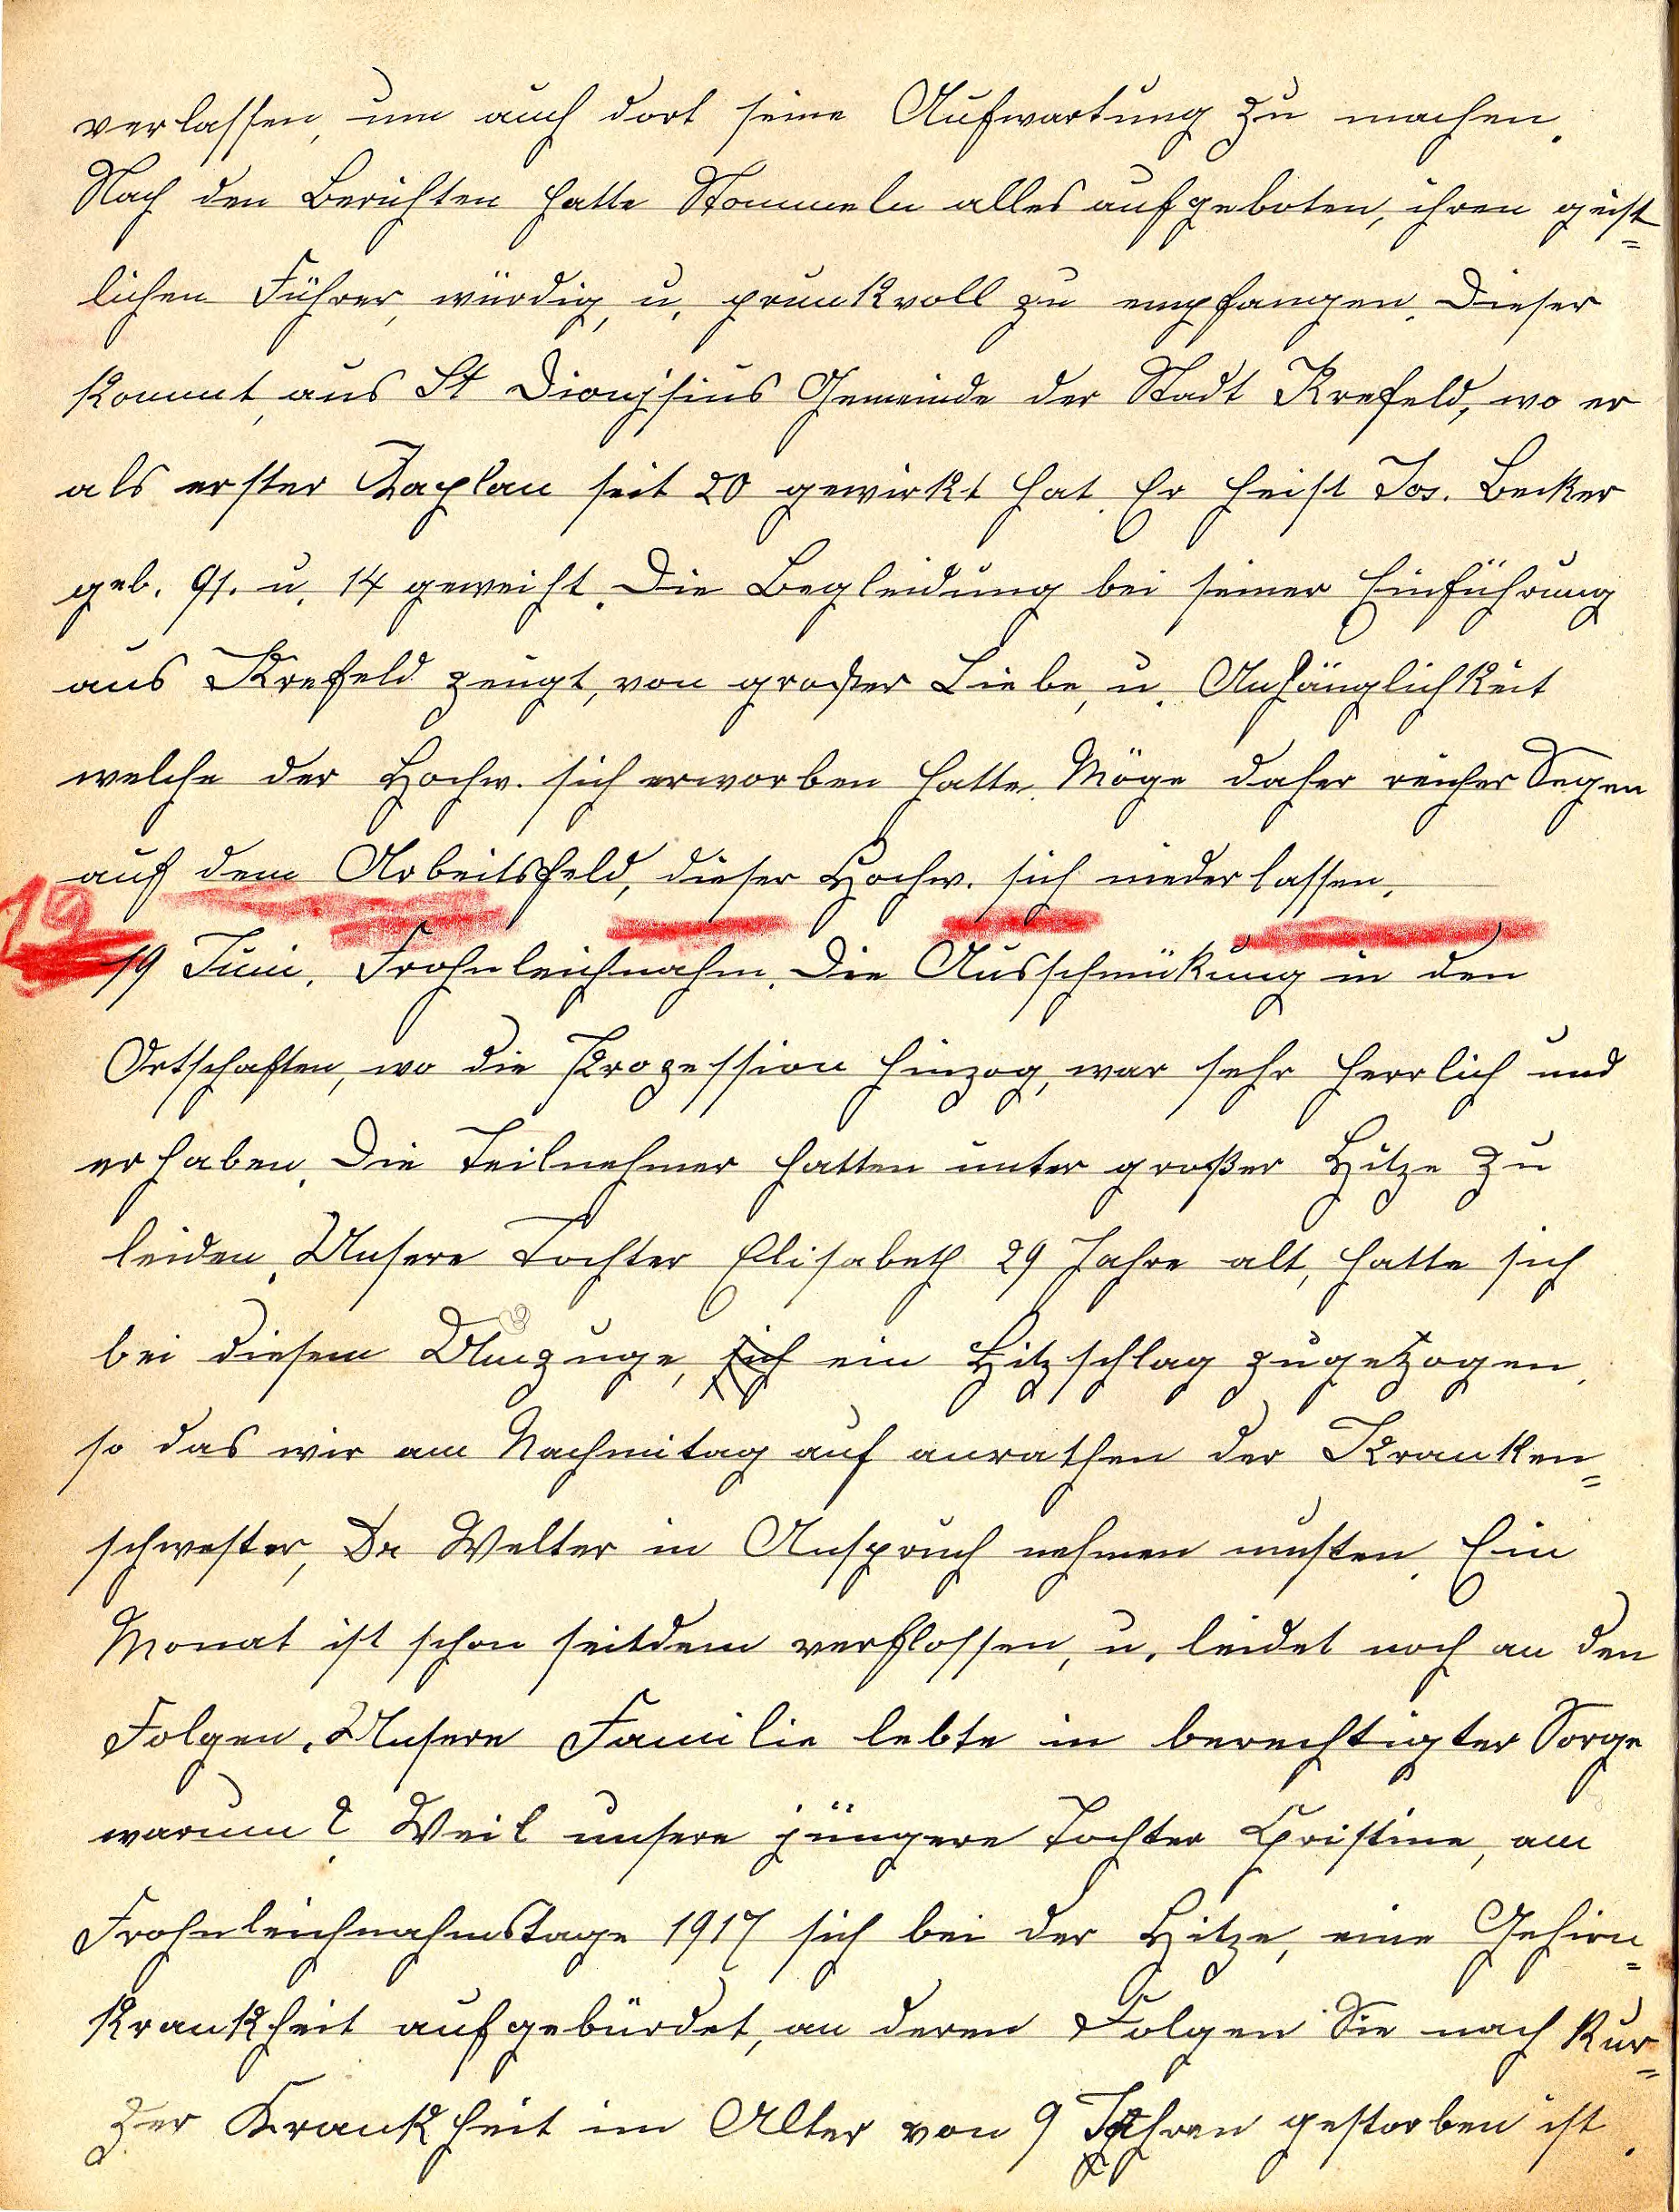 verlassen, um auch dort seine Aufwartung zu machen.
Nach den Berichten hatte Stommeln alles aufgeboten, ihren geist=
lichen Führer, würdig, u. prunkvoll zu empfangen. Dieser
kommt, aus St Dionÿsius Gemeinde der Stadt Krefeld, wo er
als erster Kaplan seit 20 gewirkt hat. Er heist Jos. Becker
geb. 91. u. 14 geweiht. Die Begleidung bei seiner Einführung
aus Krefeld zeugt, von großer Liebe, u. Anhänglichkeit
welche der Hochw. sich erworben hatte. Möge daher reicher Segen
auf dem Arbeitsfeld, dieser Hochw. sich niederlassen.
19
19 Juni. Frohnleichnahm. Die Ausschmükung in den
Ortschaften, wo die Prozession hinzog, war sehr herrlich und
erhaben. Die Teilnehmer hatten unter großer Hitze zu
leiden. Unsere Tochter Elisabeth 29 Jahre alt, hatte sich
bei diesem Umzuge, sich ein Hitzschlag zugezogen.
so das wir am Nachmitag auf anrathen der Kranken=
schwester, Dr Welter in Anspruch nehmen musten. Ein
Monat ist schon seitdem verflossen, u. leidet noch an den
Folgen. Unsere Familie lebte in berechtigter Sorge
warum? Weil unsere jüngere Tochter Christine, am
Frohnleichnahmstage 1917 sich bei der Hitze, eine Gehirn=
krankheit aufgebürdet, an deren Folgen Sie nach kur=
zer Krankheit im Alter von 9 Jahren gestorben ist.